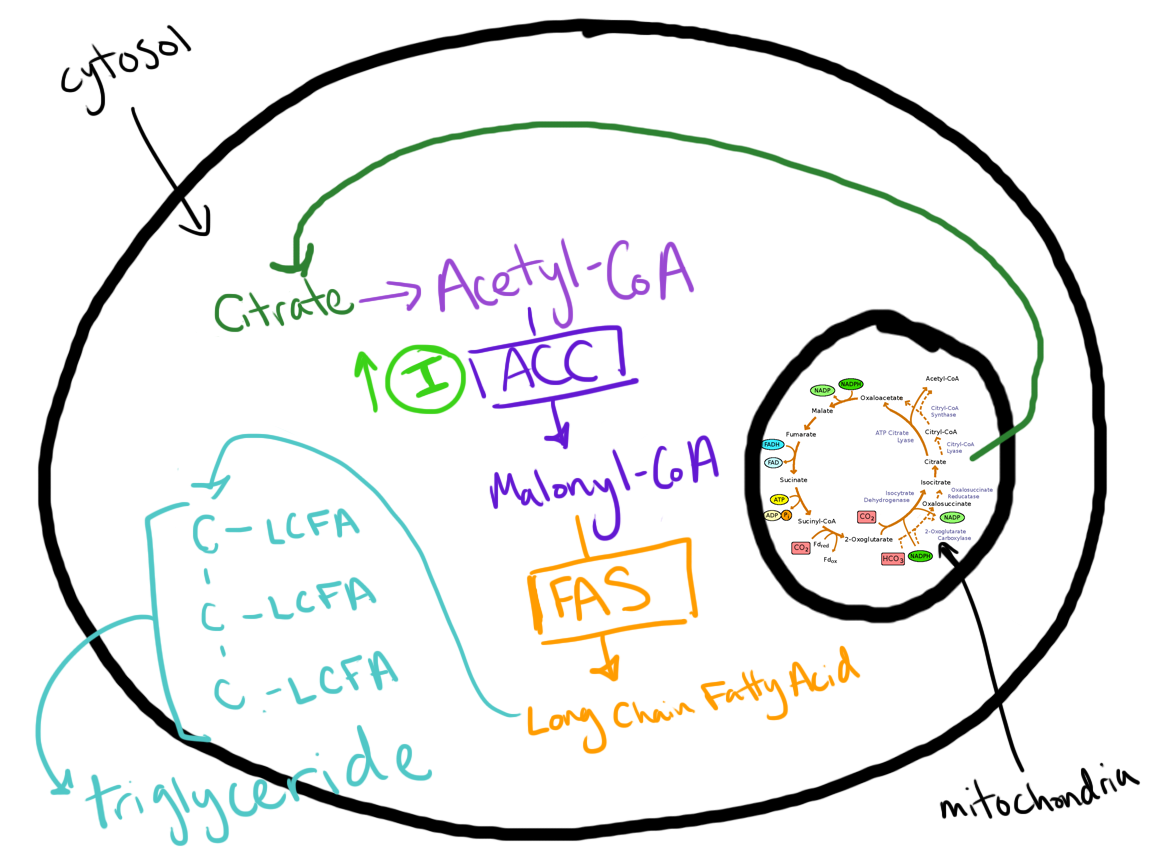 cytosol
Citrate
Acetyl-CoA
I
ACC
Malonyl-CoA
FAS
Long Chain Fatty Acid
C-LCFA
C-LCFA
C-LCFA
triglyceride
mitochondria
Acetyl-CoA
NADP
NADPH
Oxaloacetate
Malate
Citryl-CoA
Synthase
Fumarate
ATP Citrate
Lyase
Citryl-CoA
FADH
Citryl-CoA
Lyase
FAD
Citrate
Sucinate
Isocitrate
ATP
Isocytrate
Dehydrogenase
Oxalosuccinate
Reducatase
Oxalosuccinate
ADP
Pi
Sucinyl-CoA
CO2
NADP
2-Oxoglutarate
Carboxylase
CO2
Fdred
2-Oxoglutarate
Fdox
HCO3
NADPH